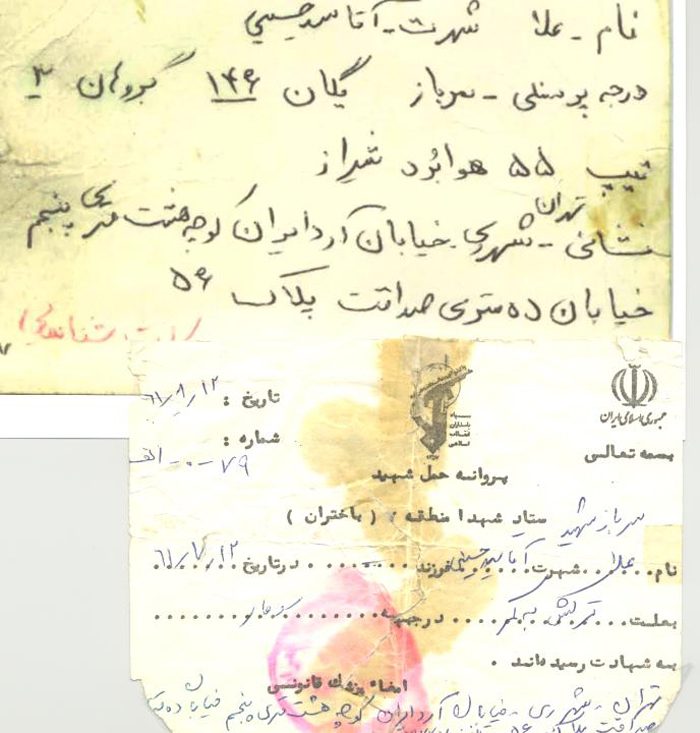 نام - علا شهرت - آقا سید حسینی
درجه پرسنلی - سرباز یگان ۱۴۶ گروهان ۲
تیپ ۵۵ هوابرد شیراز
نشانی - تهران شهر ری خیابان آرد ایران کوچه هشت متری پنجم
خیابان ده متری صداقت پلاک ۵۶
جمهوری اسلامی ایران
بسمه تعالی
سپاه پاسداران انقلاب اسلامی
تاریخ : ۶۱/۸/۱۲
شماره : ۷۹-۰-الف
پروانه حمل شهید
سرباز شهید ستاد شهدا منطقه ( باختران )
نام علا شهرت آقا سید حسینی فرزند در تاریخ ۶۱/۷/۱۲
بعلت ترکش به سر در جبهه سومار
به شهادت رسیده‌اند .
امضاء پزشک قانونی
تهران - شهر ری - خیابان آرد ایران کوچه هشت متری پنجم خیابان ده
صداقت پلاک ۵۶